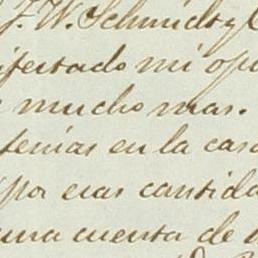 J. W. Schmidt y C
ifestado mi opi
mucho mas.
tenias en la cas
por esas cantida
una cuenta de